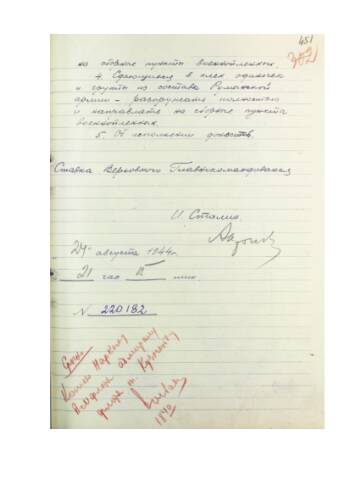 451
302
на сборные пункты военнопленных.
4. Сдающихся в плен одиночек
и группы из состава Румынской
армии – разоружать полностью
и направлять на сборные пункты
военнопленных.
5. Об исполнении донести.
Ставка Верховного Главнокомандования
И. Сталин.
24 августа 1944г.
21 час мин.
N 220182
Копия Наркому
флота т. Кузнецову